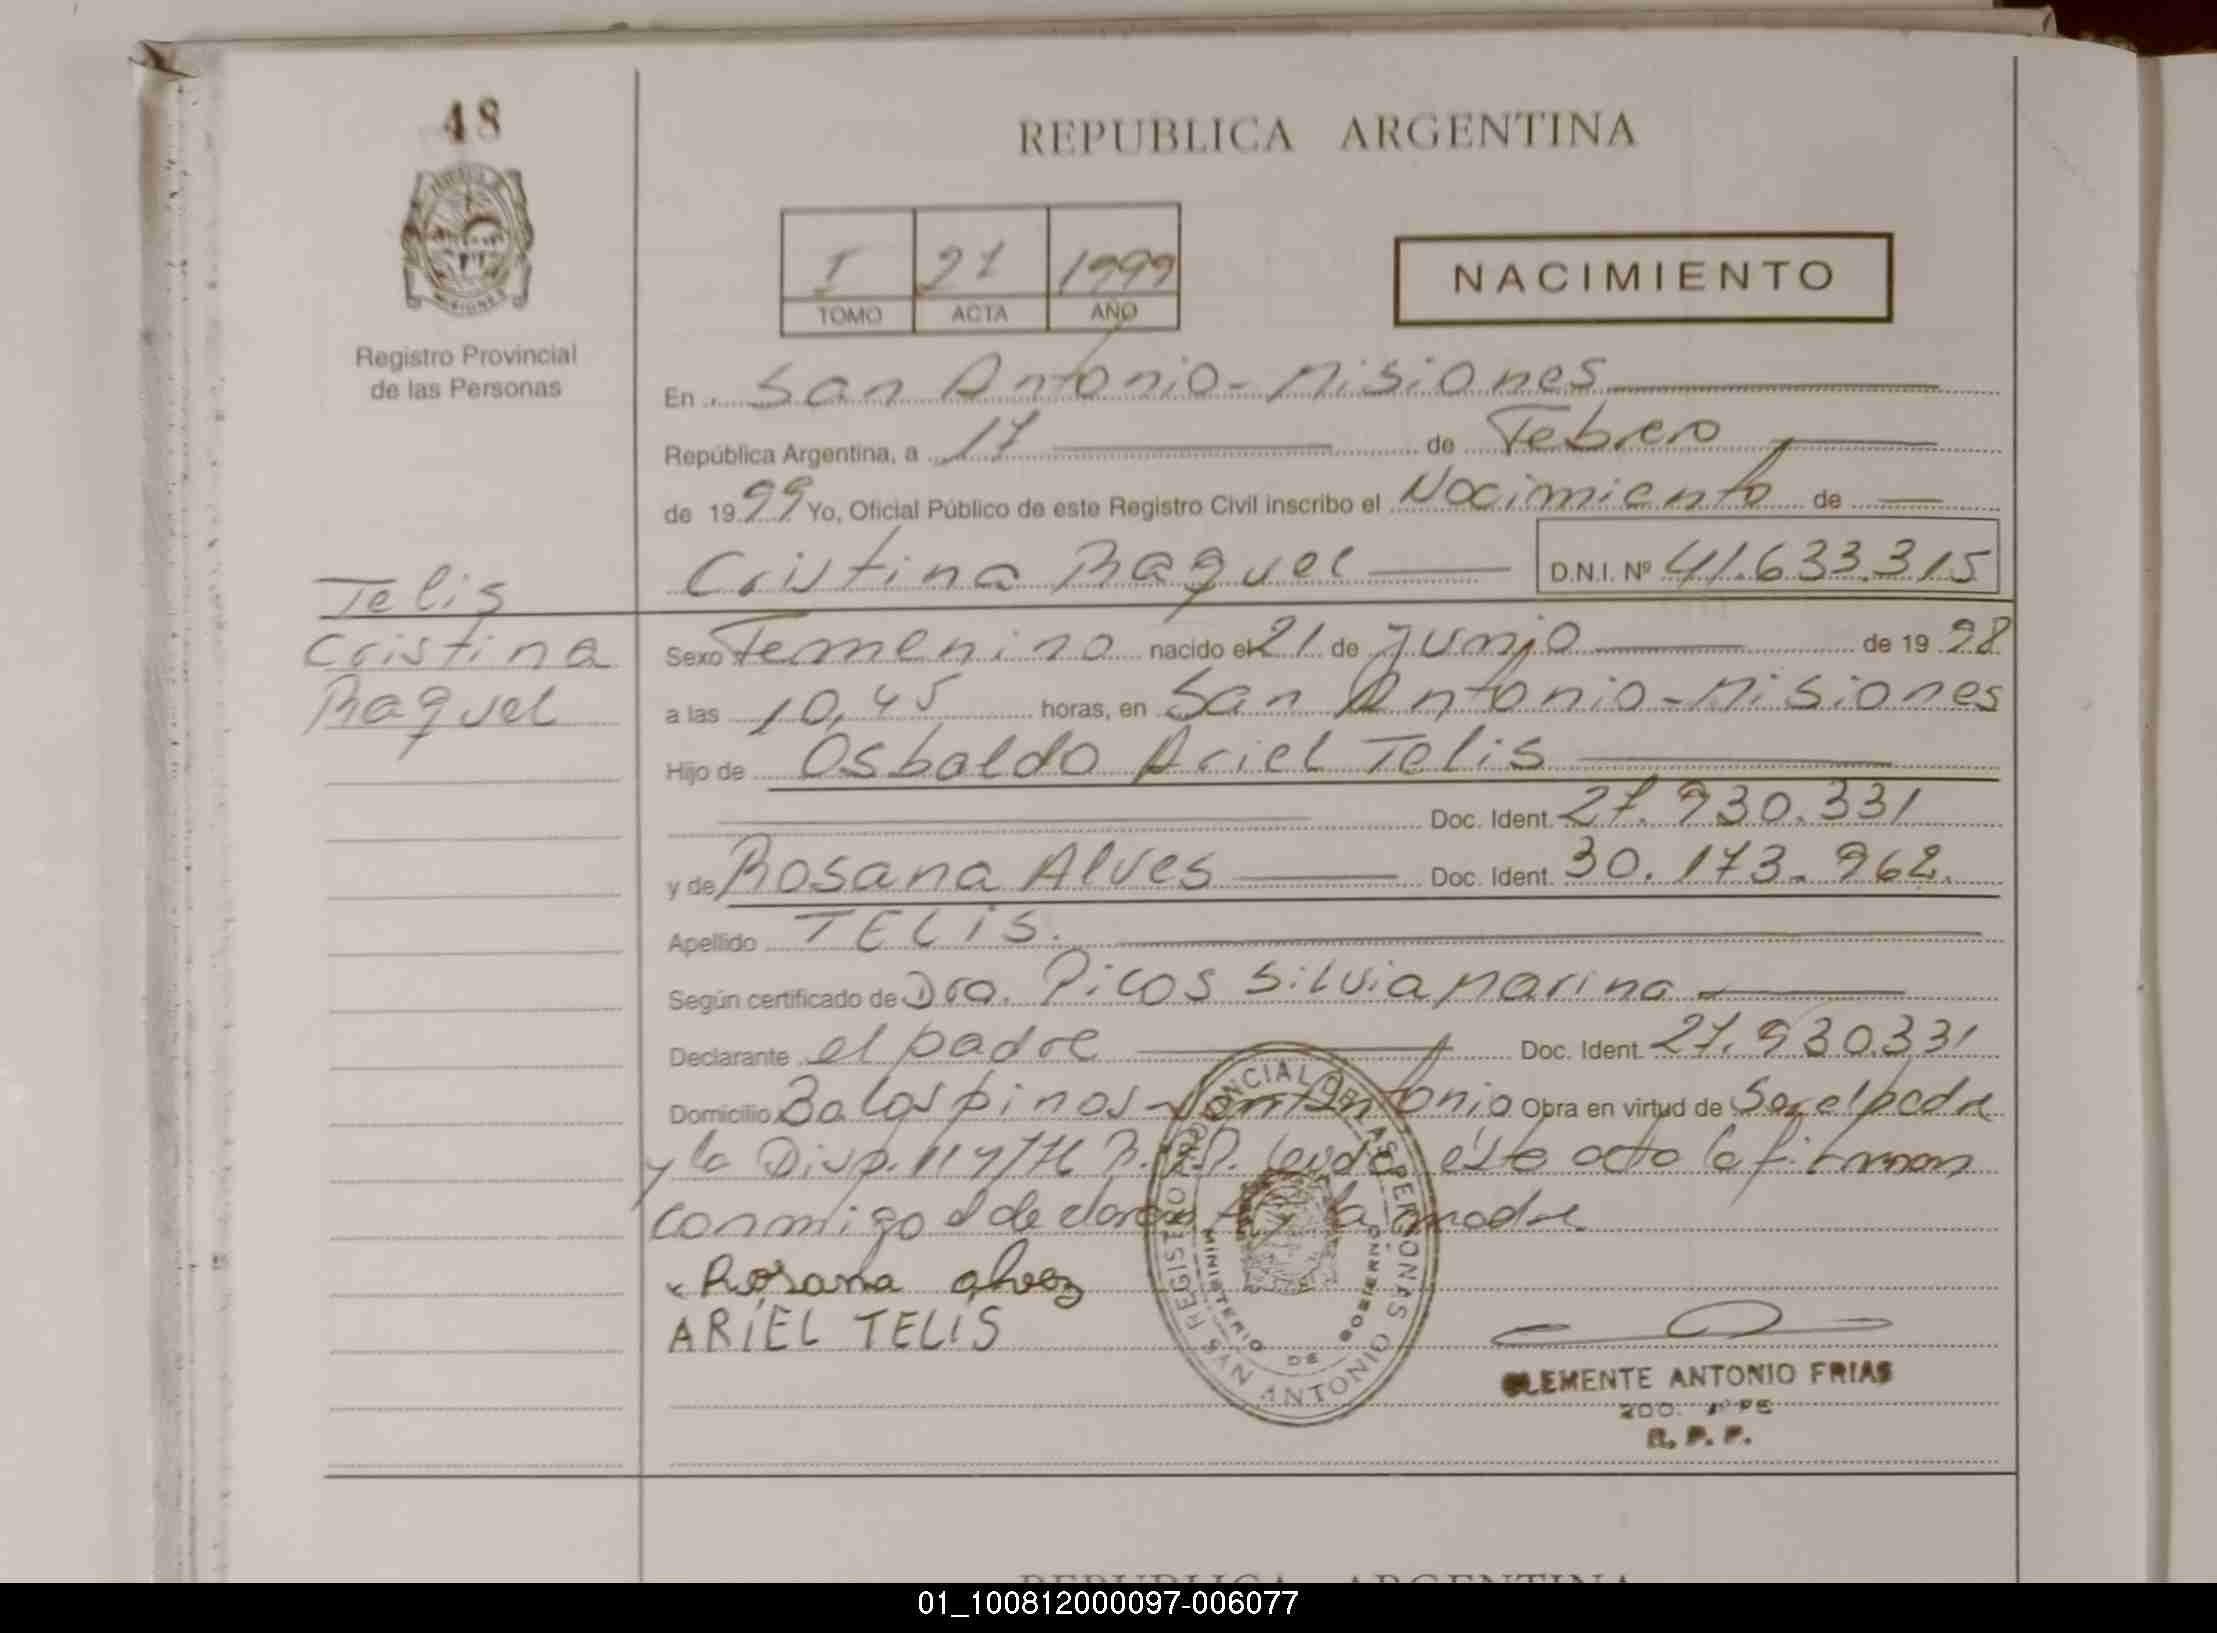 48
REPUBLICA ARGENTINA
I 21 1999
TOMO ACTA AÑO
NACIMIENTO
Registro Provincial
de las Personas
En San Antonio - Misiones
República Argentina, a 17 de Febrero
de 1999 Yo, Oficial Público de este Registro Civil inscribo el Nacimiento de
Cristina Raquel D.N.I. Nº 41.633.315
Telis
Cristina
Raquel
Sexo Femenino nacido el 21 de Junio de 1998
a las 10,45 horas, en San Antonio - Misiones
Hijo de Osbaldo Ariel Telis
Doc. Ident. 27.930.331
y de Rosana Alves Doc. Ident. 30.173.962.
Apellido TELIS.
Según certificado de Dra. Picos Silvia Marina
Declarante el padre Doc. Ident. 27.930.331
Domicilio Ba Los pinos - San Antonio Obra en virtud de Ser el padre
y la Disp. R.P.P. Leida éste acta la firman
conmigo el declarante y la madre
Rosana alvez
ARIEL TELIS
REGISTRO PROVINCIAL DE LAS PERSONAS
MINISTERIO DE GOBIERNO
SAN ANTONIO
CLEMENTE ANTONIO FRIAS
R. P. P.
REPUBLICA ARGENTINA
01_100812000097-006077